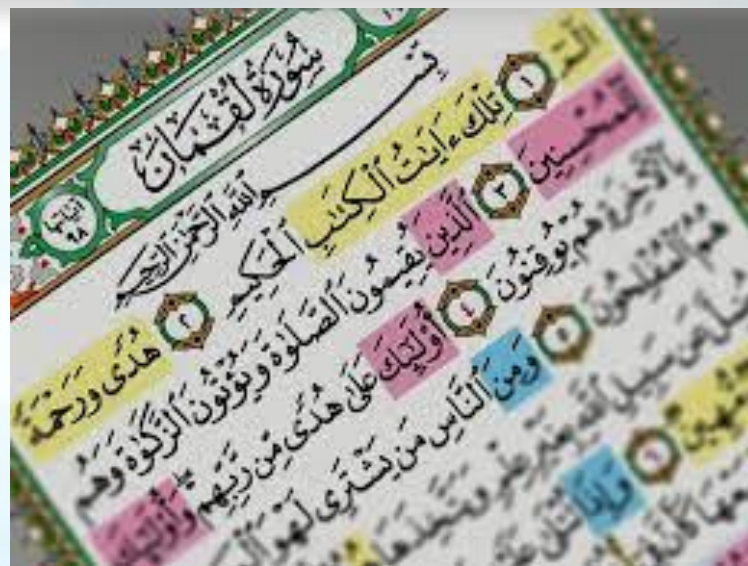 سُورَةُ لُقْمَانَ
بِسْمِ اللَّهِ الرَّحْمَٰنِ الرَّحِيمِ
الٓمٓ ١ تِلْكَ ءَايَٰتُ ٱلْكِتَٰبِ ٱلْحَكِيمِ ٢ هُدًى وَرَحْمَةً
لِّلْمُحْسِنِينَ ٣ ٱلَّذِينَ يُقِيمُونَ ٱلصَّلَوٰةَ وَيُؤْتُونَ ٱلزَّكَوٰةَ وَهُم
بِٱلْءَاخِرَةِ هُمْ يُوقِنُونَ ٤ أُو۟لَٰٓئِكَ عَلَىٰ هُدًى مِّن رَّبِّهِمْ وَأُو۟لَٰٓئِكَ
هُمُ ٱلْمُفْلِحُونَ ٥ وَمِنَ ٱلنَّاسِ مَن يَشْتَرِى لَهْوَ
عَن سَبِيلِ ٱللَّهِ بِغَيْرِ عِلْمٍ وَيَتَّخِذَهَا
مُّهِينٌ ٦ وَإِذَا تُتْلَىٰ